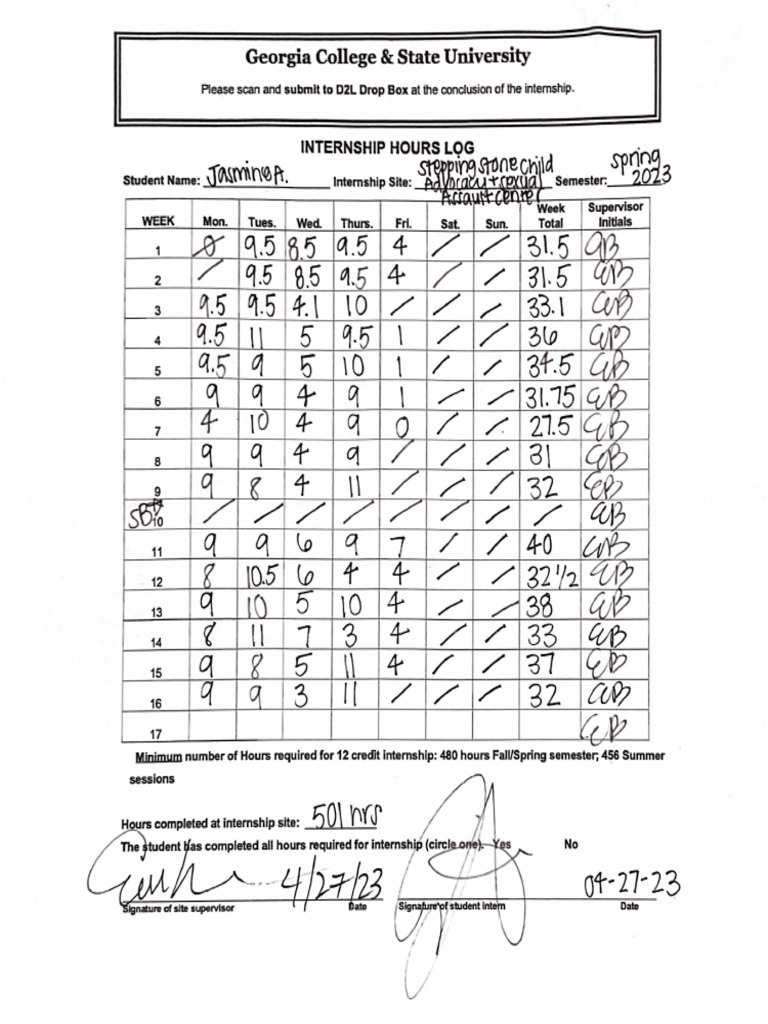 Georgia College & State University
Please scan and submit to D2L Drop Box at the conclusion of the internship.
INTERNSHIP HOURS LOG
Student Name: Jasmine A. Internship Site: Stepping Stone Child Advocacy + Sexual Assault Center Semester: Spring 2023
WEEK Mon. Tues. Wed. Thurs. Fri. Sat. Sun. Week Total Supervisor Initials
1 0 9.5 8.5 9.5 4 / / 31.5 EB
2 / 9.5 8.5 9.5 4 / / 31.5 EB
3 9.5 9.5 4.1 10 / / / 33.1 EB
4 9.5 11 5 9.5 1 / / 36 EB
5 9.5 9 5 10 1 / / 34.5 EB
6 9 9 4 9 1 / / 31.75 EB
7 4 10 4 9 0 / / 27.5 EB
8 9 9 4 9 / / / 31 EB
9 9 8 4 11 / / / 32 EB
SB 10 / / / / / / / / EB
11 9 9 6 9 7 / / 40 EB
12 8 10.5 6 4 4 / / 32 1/2 EB
13 9 10 5 10 4 / / 38 EB
14 8 11 7 3 4 / / 33 EB
15 9 8 5 11 4 / / 37 EB
16 9 9 3 11 / / / 32 EB
17 EB
Minimum number of Hours required for 12 credit internship: 480 hours Fall/Spring semester; 456 Summer
sessions
Hours completed at internship site: 501 hrs
The student has completed all hours required for internship (circle one). Yes No
4/27/23 04-27-23
Signature of site supervisor Date Signature of student intern Date